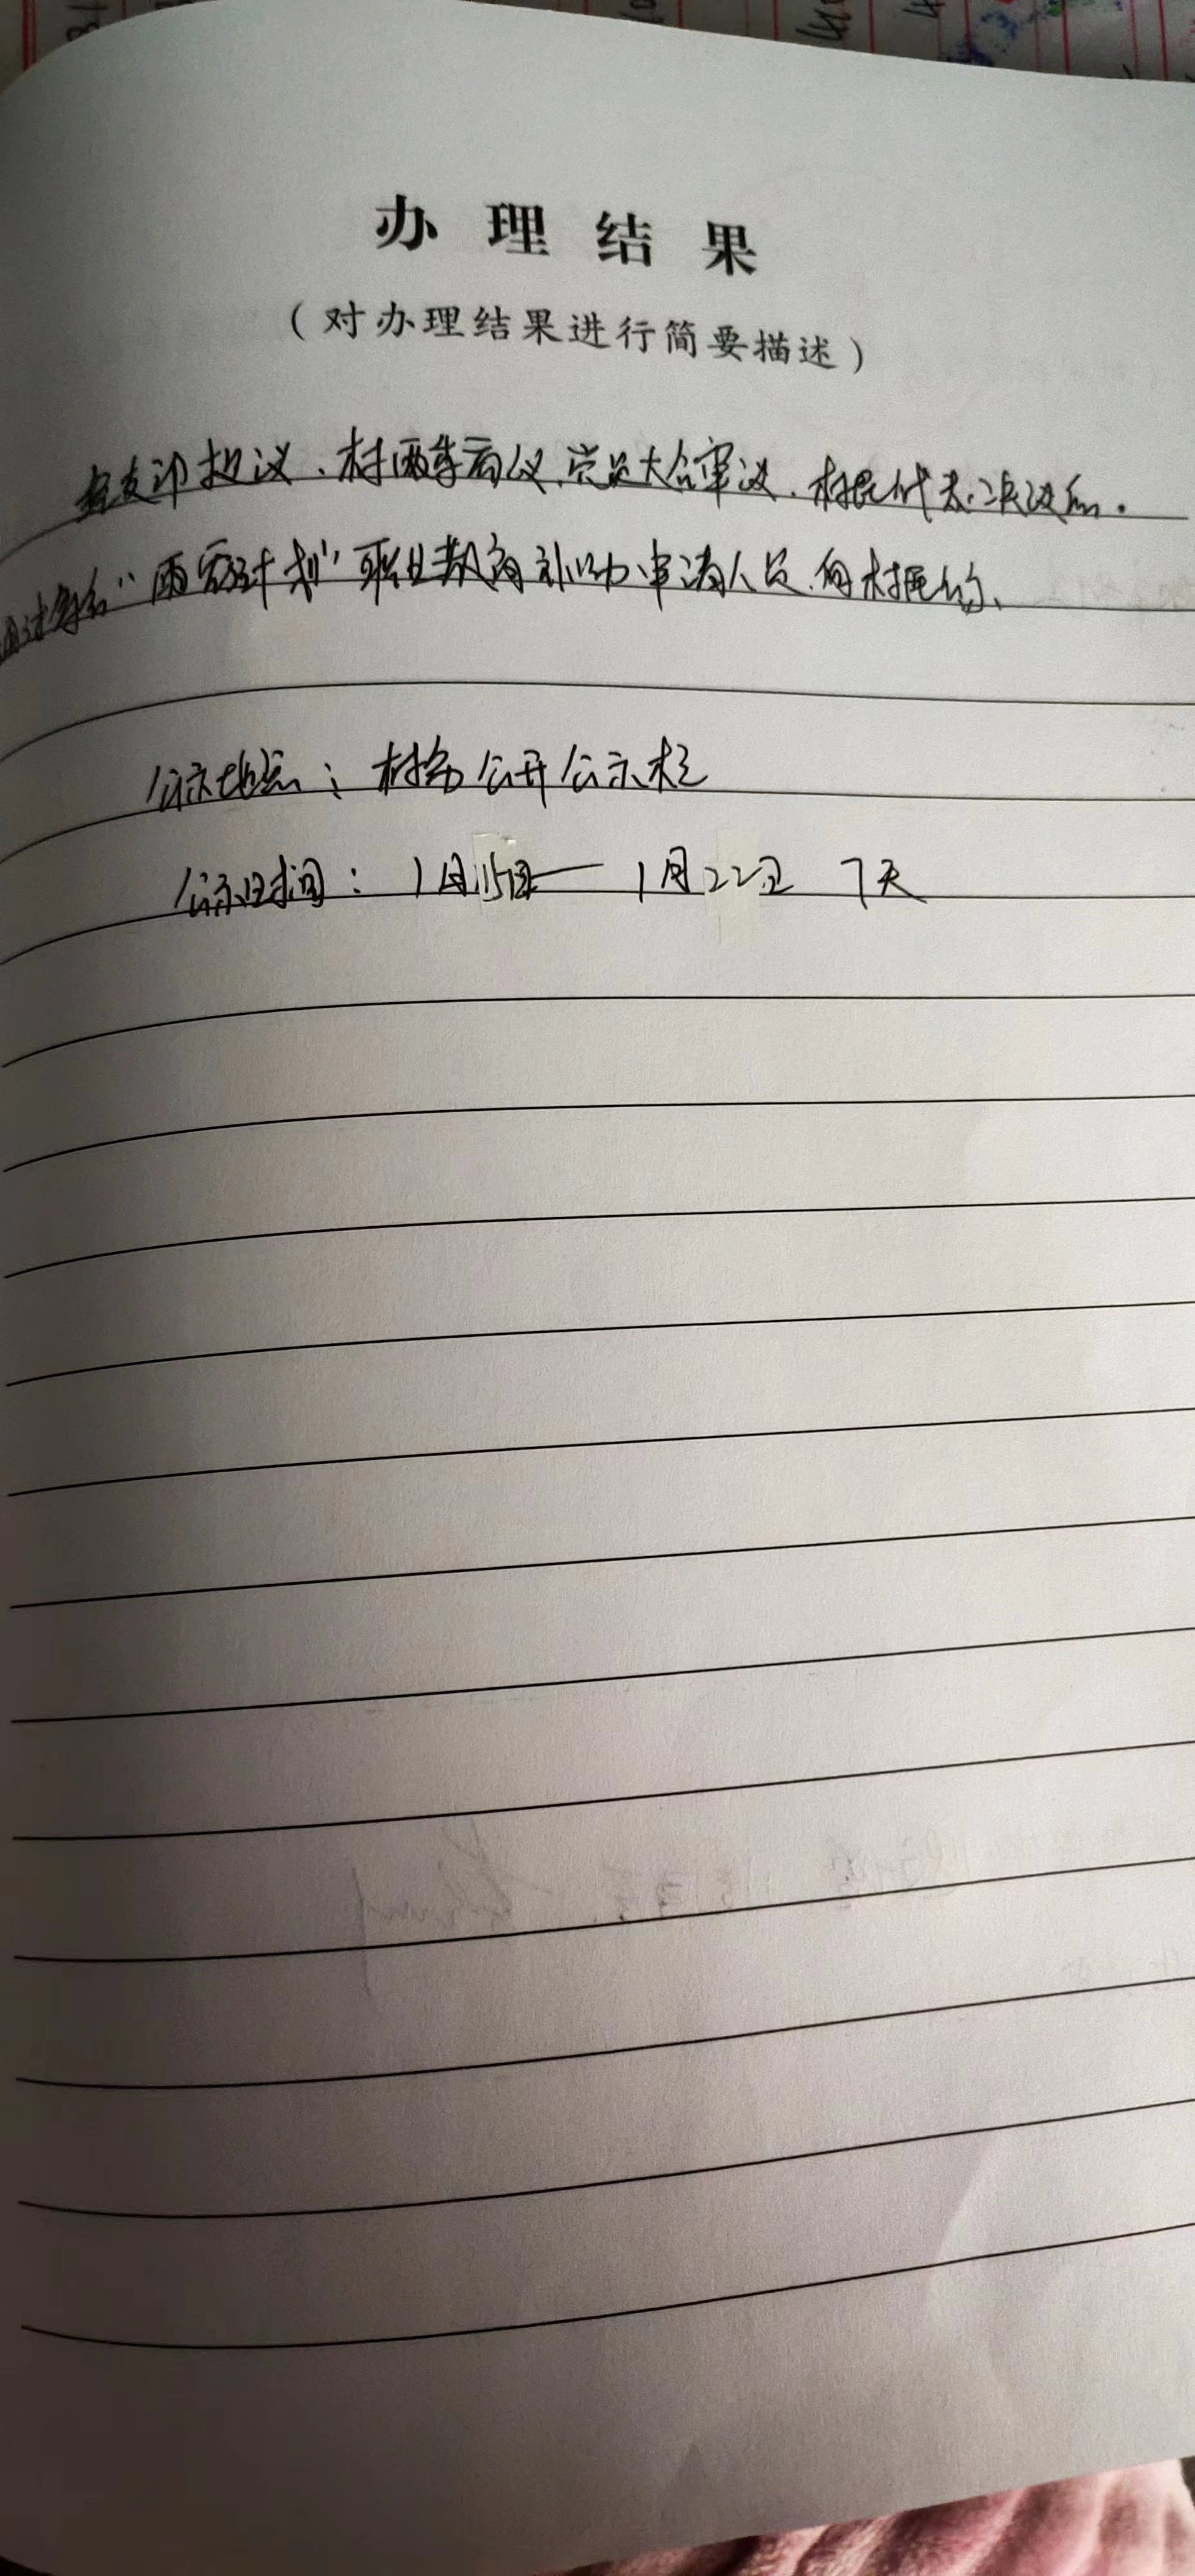 办理结果
（对办理结果进行简要描述）
支部提议、村两委商议、党员大会审议、村民代表决议后.
"雨露计划"职业教育补助申请人员.向村民公
公示地点：村务公开公示栏
公示时间：1月15日—1月22日 7天